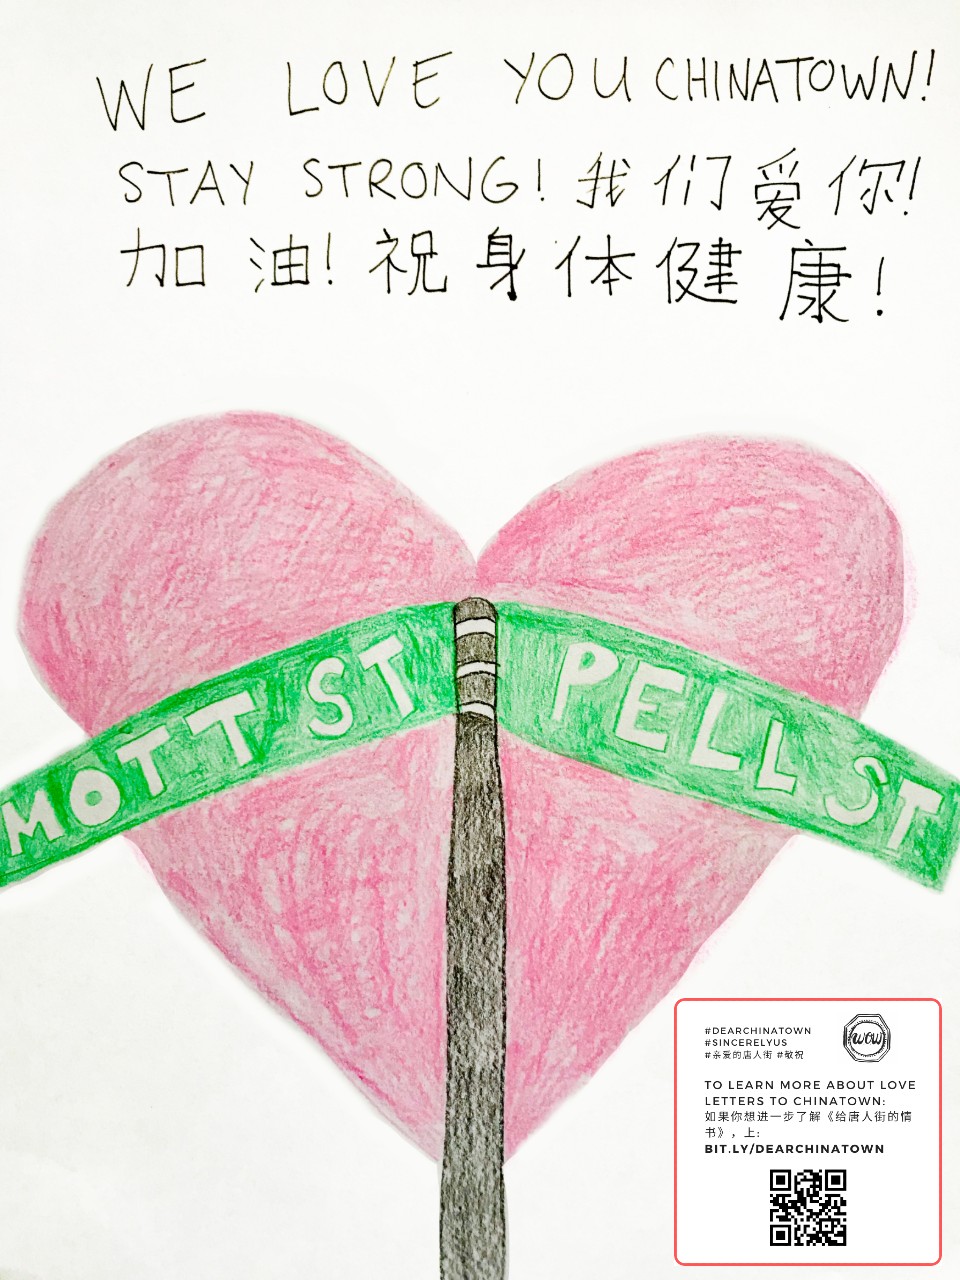 WE LOVE YOU CHINATOWN!
STAY STRONG! 我们爱你!
加油! 祝身体健康!
MOTT ST PELL ST
#DEARCHINATOWN
#SINCERELYUS
#亲爱的唐人街 #敬祝
WOW
TO LEARN MORE ABOUT LOVE
LETTERS TO CHINATOWN:
如果你想进一步了解《给唐人街的情
书》，上:
BIT.LY/DEARCHINATOWN